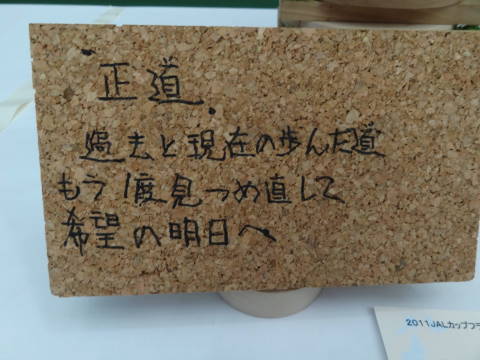 “正道”
過去と現在の歩んだ道
もう1度見つめ直して
希望の明日へ
2011JALカップフラ